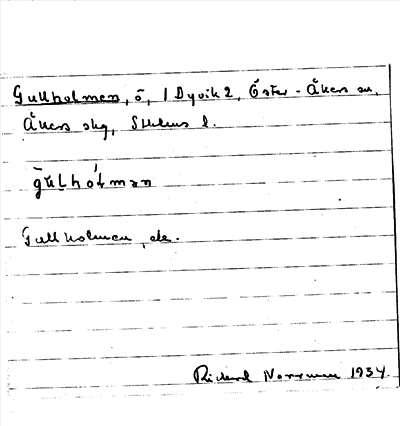 Gullholmen, ö, 1 Dyvik 2, Öster-Åkers sn,
Åkers skg, Sthlms l.
Gullholmen, de.
Richard Norrman 1934.